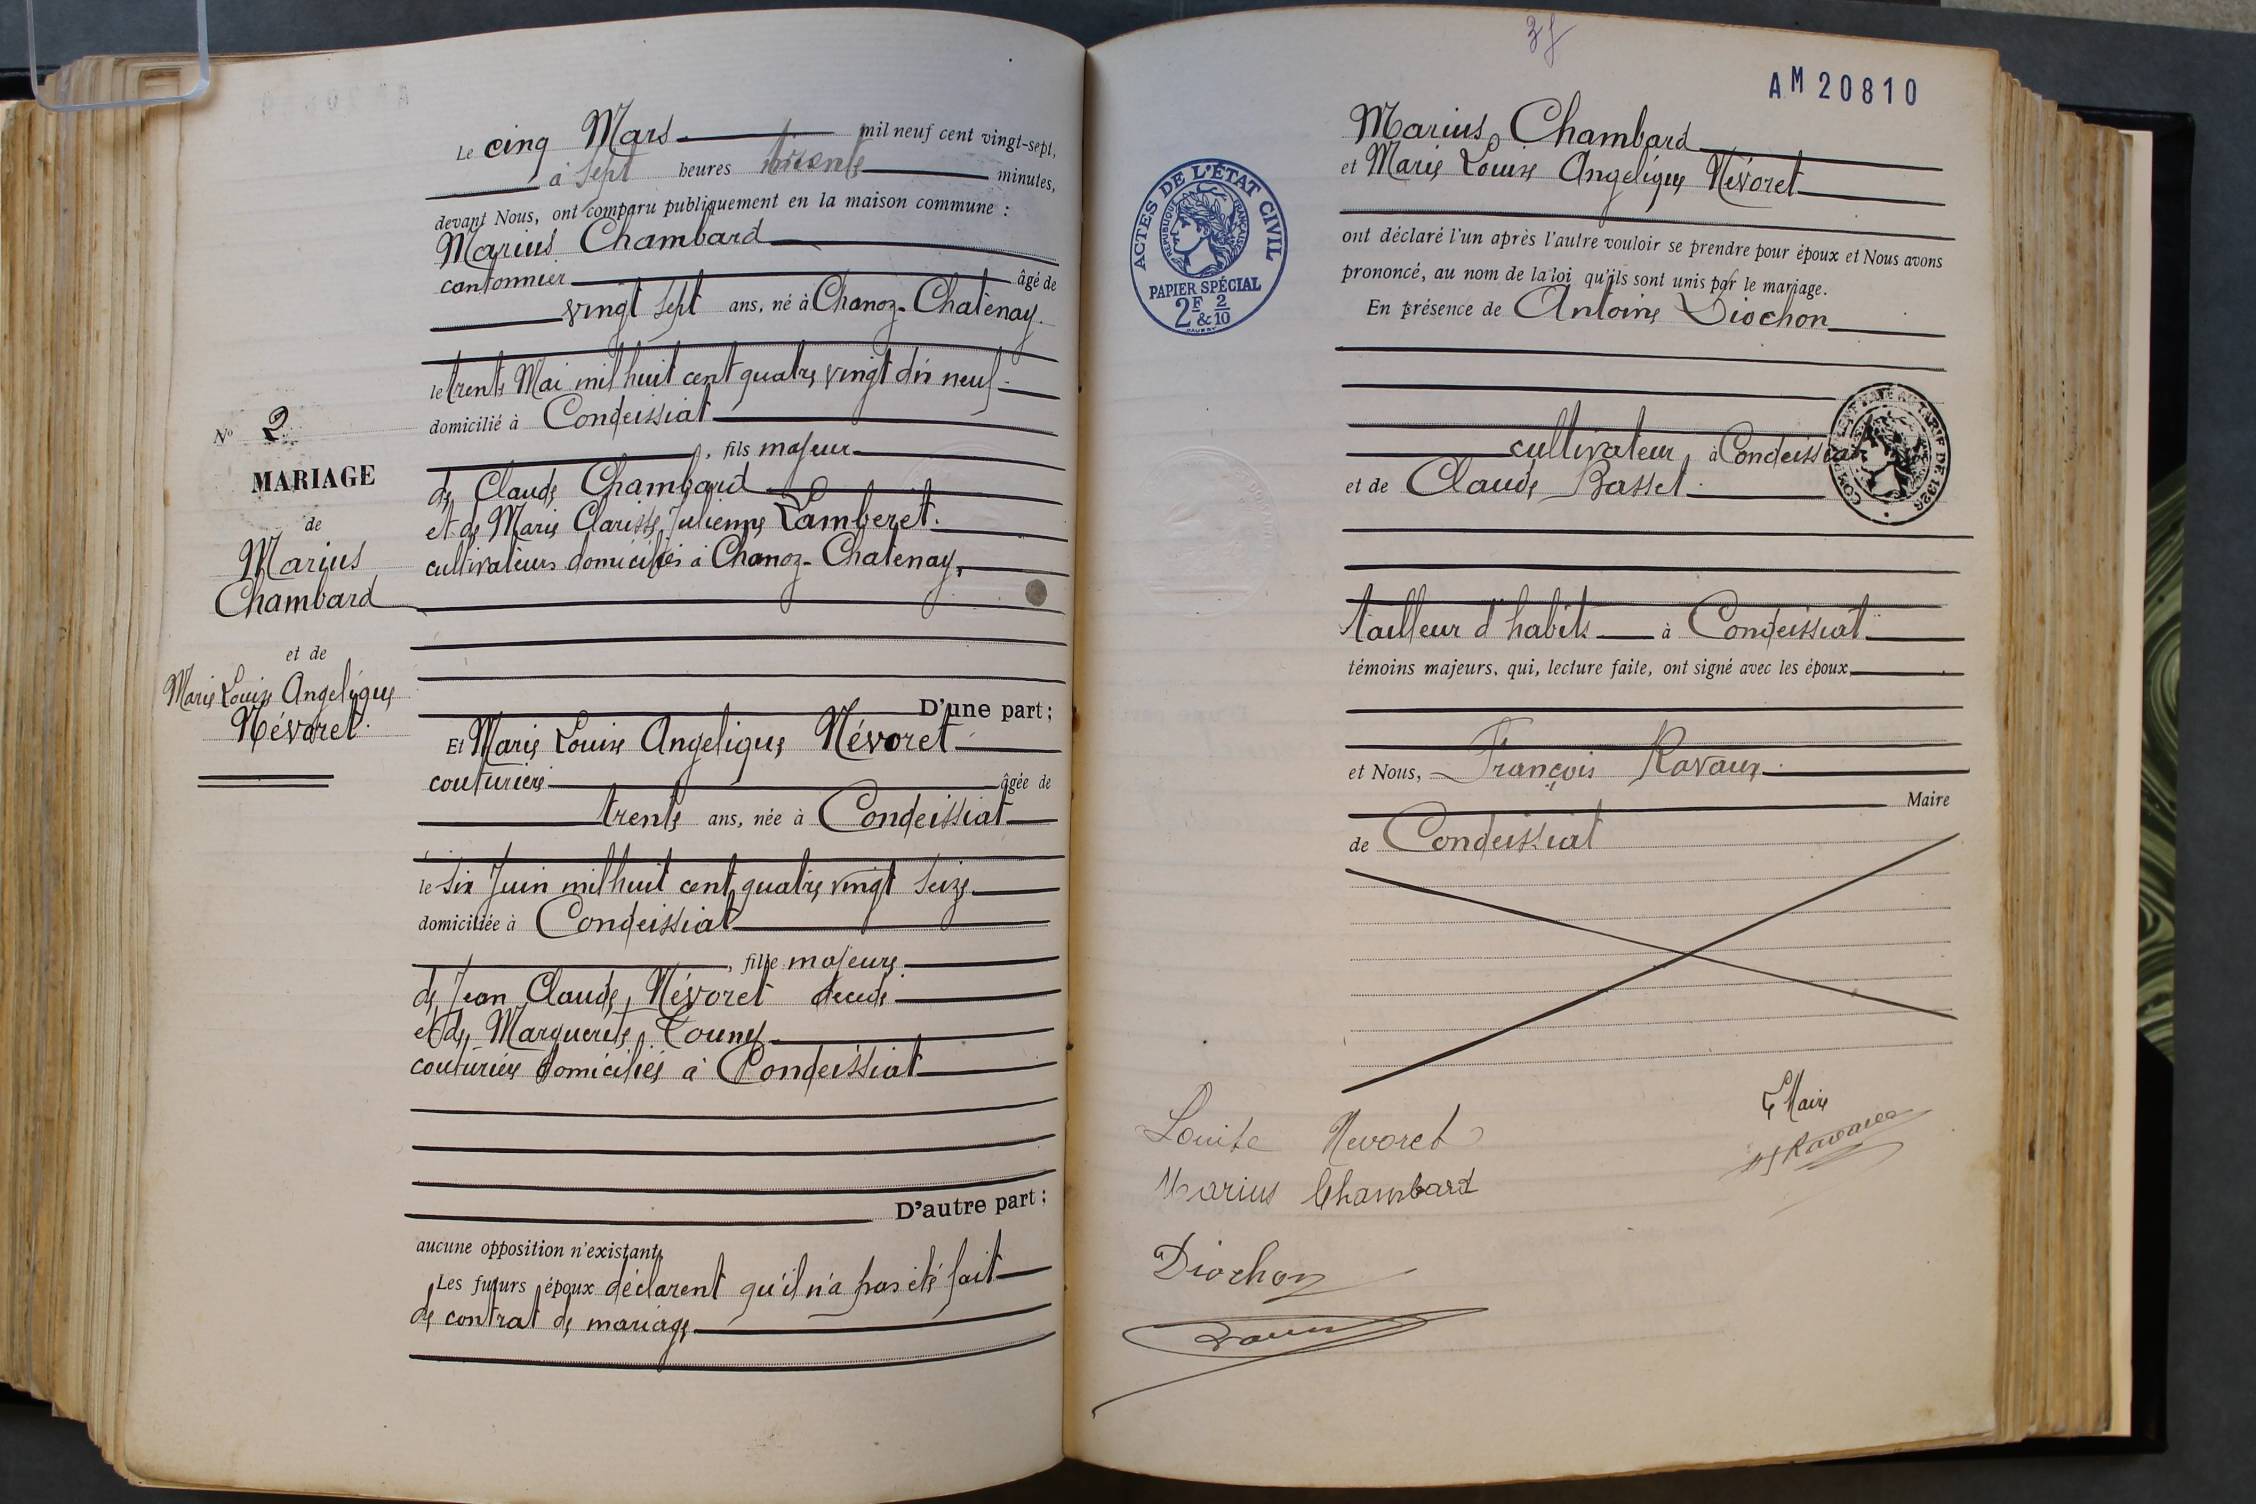 N° 2
MARIAGE
de
Marius
Chambard
et de
Marie Louise Angelique
Névoret.
Le cinq Mars mil neuf cent vingt-sept,
à sept heures trente minutes,
devant Nous, ont comparu publiquement en la maison commune :
Marius Chambard
cantonnier âgé de
vingt sept ans, né à Chanoz-Chatenay.
le trente Mai mil huit cent quatre vingt dix neuf
domicilié à Condeissiat
, fils majeur
de Claude Chambard
et de Marie Clarisse Julienne Lamberet.
cultivateurs domiciliés à Chanoz-Chatenay,
D'une part ;
Et Marie Louise Angelique Névoret
couturière âgée de
trente ans, née à Condeissiat
le six Juin mil huit cent quatre vingt seize
domiciliée à Condeissiat
, fille majeure
de Jean Claude Névoret décédé
et de Marguerite
couturière domiciliés à Condeissiat
D'autre part ;
aucune opposition n'existant.
Les futurs époux déclarent qu'il n'a pas été fait
de contrat de mariage
AM 20810
Marius Chambard
et Marie Louise Angelique Névoret
ont déclaré l'un après l'autre vouloir se prendre pour époux et Nous avons
prononcé, au nom de la loi qu'ils sont unis par le mariage.
En présence de Antoine Diochon
cultivateur à Condeissiat
et de Claude Basset
tailleur d'habits à Condeissiat
témoins majeurs, qui, lecture faite, ont signé avec les époux
et Nous, François Ravaux
Maire
de Condeissiat
ACTES DE L'ÉTAT CIVIL
RÉPUBLIQUE FRANÇAISE
PAPIER SPÉCIAL
2F & 2/10
TARIF DE 1926
Louise Nevoret
Marius Chambard
Diochon
Le Maire